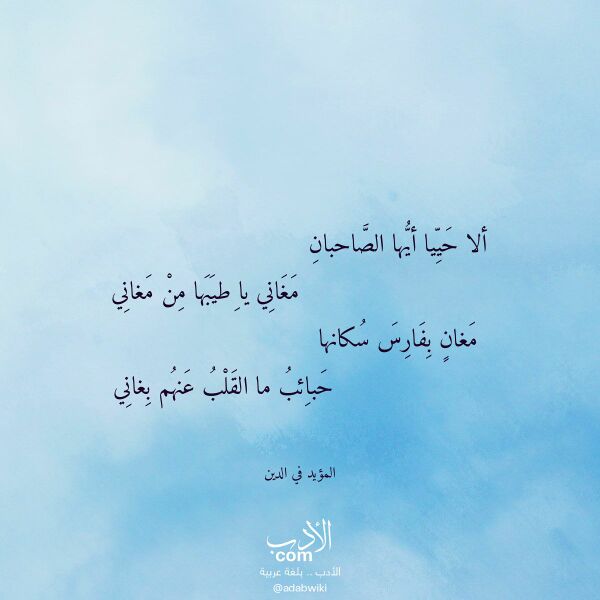 ألا حَيِّيا أيُّها الصَّاحبانِ
مَغَانِي ياِ طيَبَها مِنْ مَغانِي
مَغانٍ بِفَارِسَ سُكانها
حَبائِبُ ما القَلْبُ عَنهُم بِغانِي
المؤيد في الدين
الأدب
com
الأدب .. بلغة عربية
@adabwiki